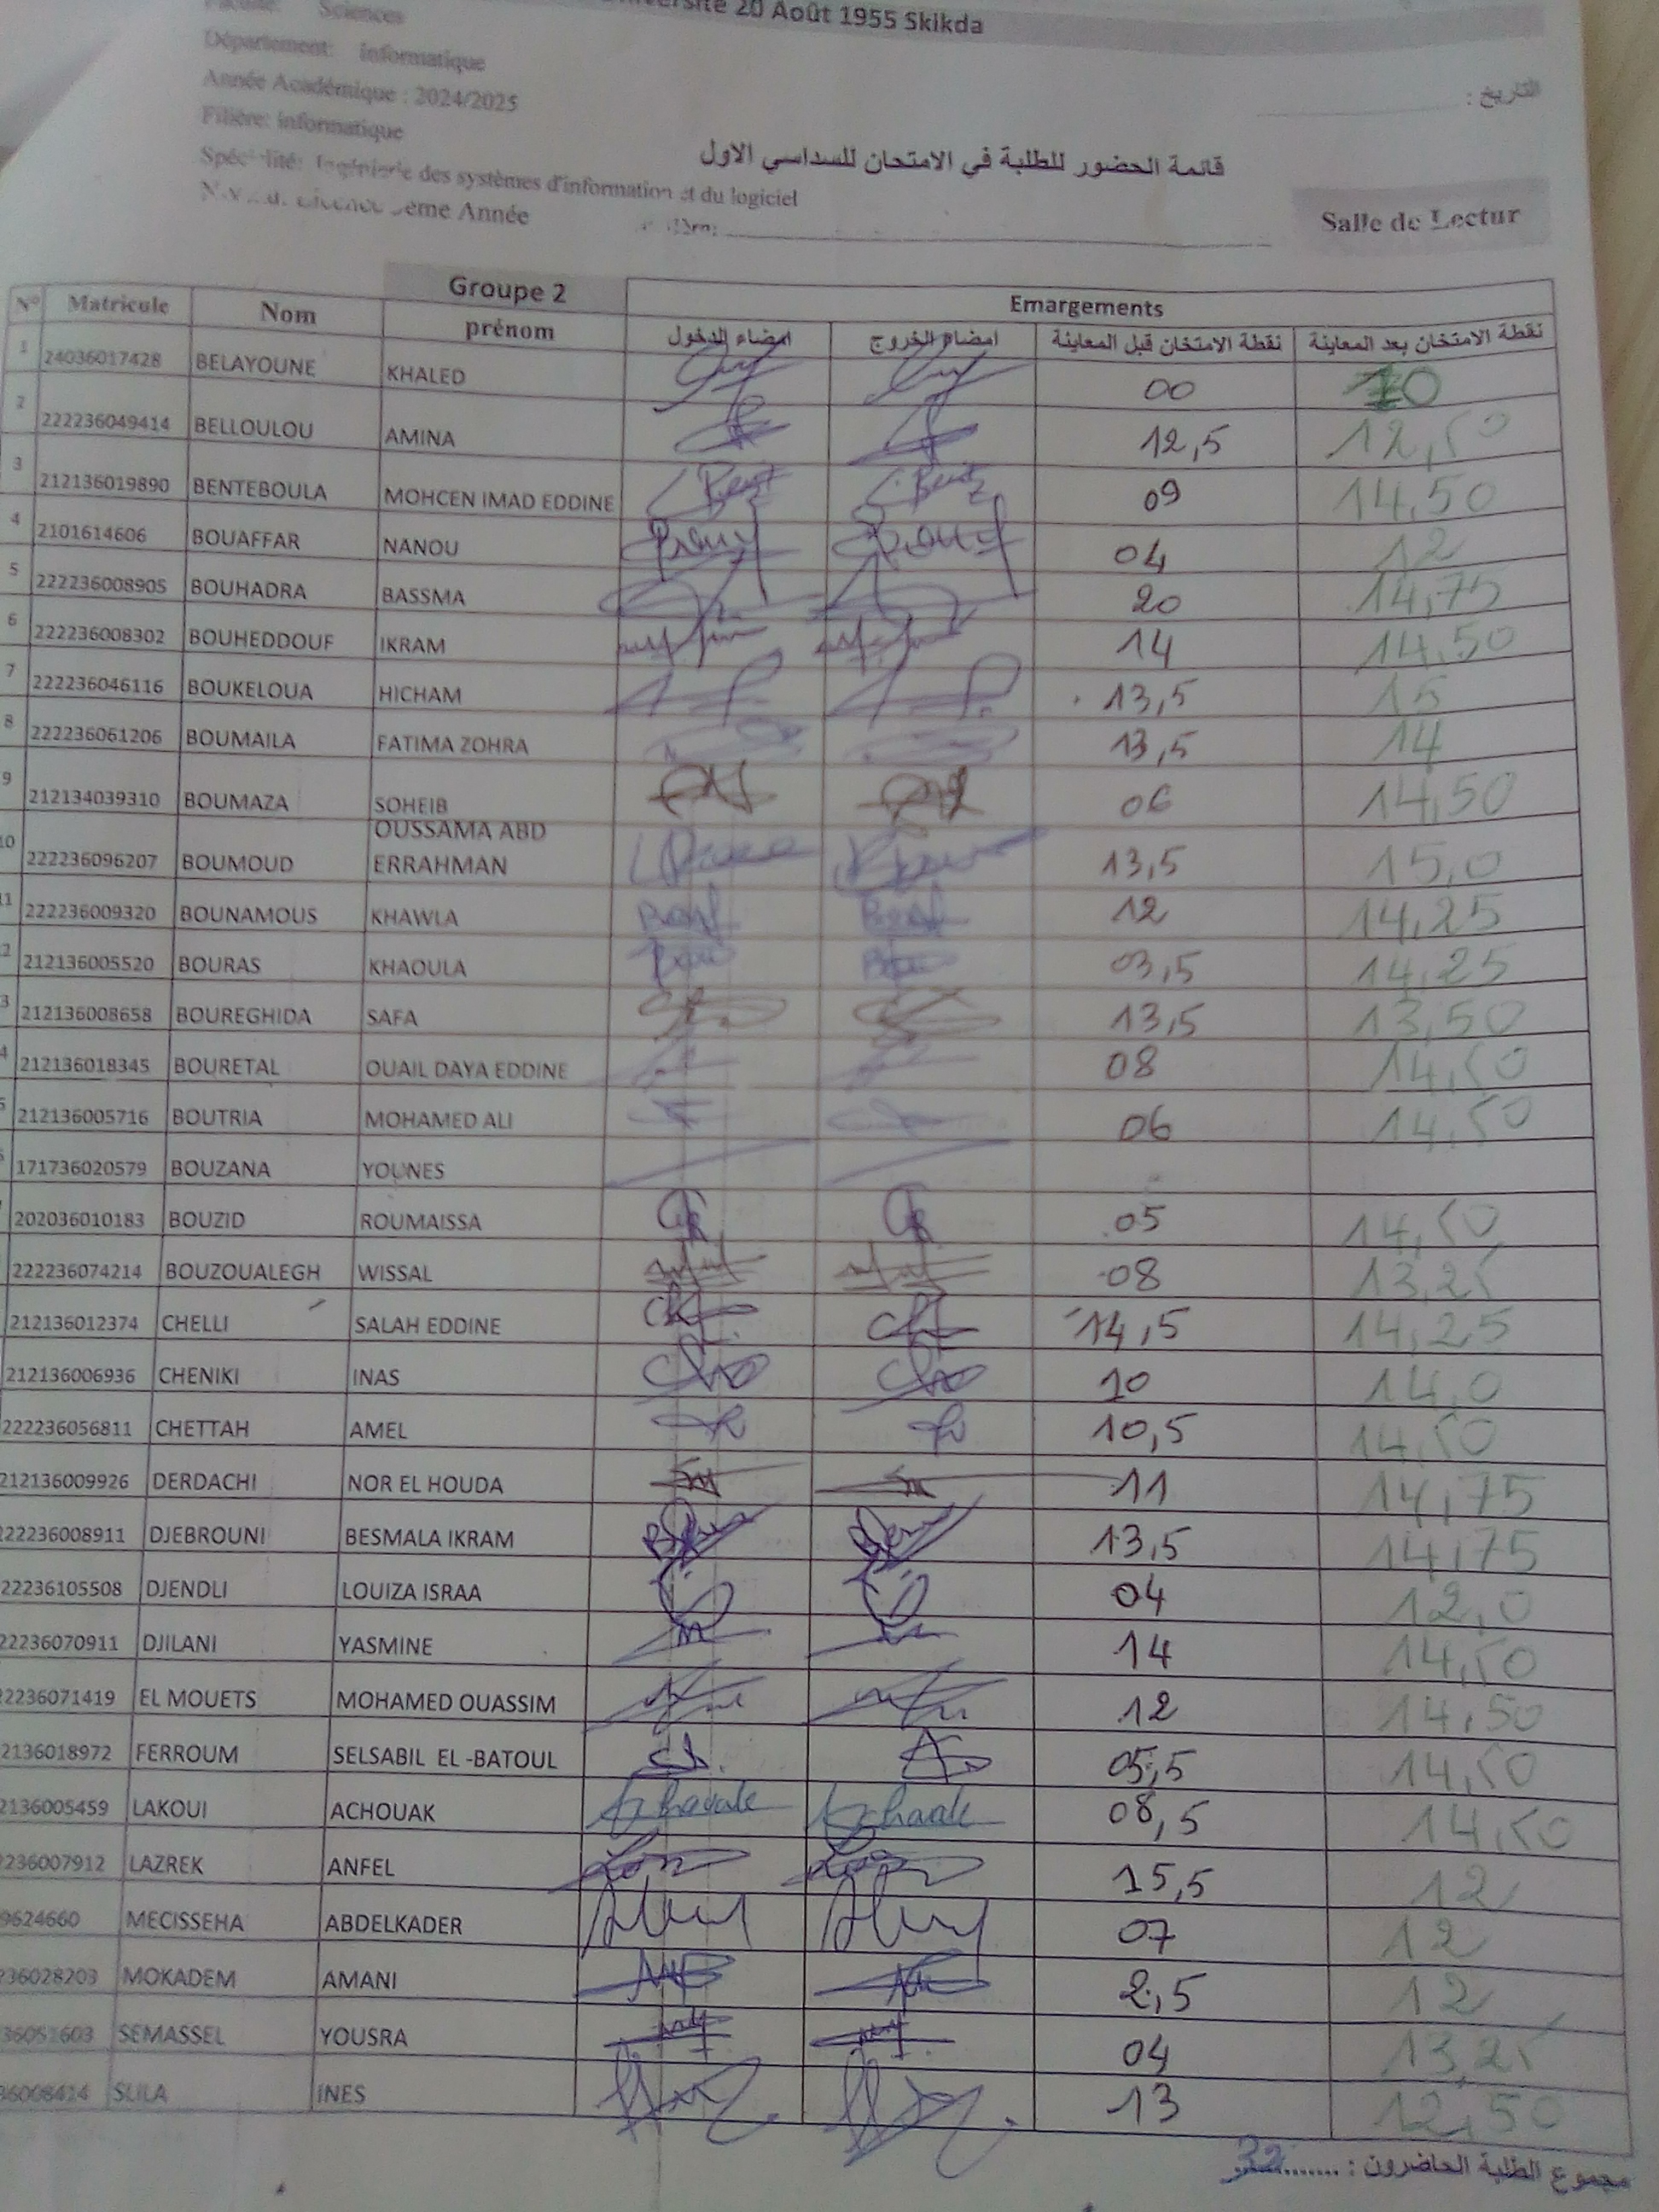 Université 20 Août 1955 Skikda
Faculté: Sciences
Département: Informatique
Année Académique : 2024/2025
Filière: informatique
Spécialité: Ingénierie des systèmes d'information et du logiciel
ème Année
التاريخ :
قائمة الحضور للطلبة في الامتحان للسداسي الاول
Salle de Lectur
Groupe 2
Emargements
N° Matricule Nom prénom امضاء الدخول امضاء الخروج نقطة الامتحان قبل المعاينة نقطة الامتحان بعد المعاينة
1 24036017428 BELAYOUNE KHALED 00 10
2 222236049414 BELLOULOU AMINA 12,5 12,50
3 212136019890 BENTEBOULA MOHCEN IMAD EDDINE 09 14,50
4 2101614606 BOUAFFAR NANOU 04 12
5 222236008905 BOUHADRA BASSMA 20 14,75
6 222236008302 BOUHEDDOUF IKRAM 14 14,50
7 222236046116 BOUKELOUA HICHAM 13,5 15
8 222236061206 BOUMAILA FATIMA ZOHRA 13,5 14
9 212134039310 BOUMAZA SOHEIB 06 14,50
10 222236096207 BOUMOUD OUSSAMA ABD ERRAHMAN 13,5 15,0
11 222236009320 BOUNAMOUS KHAWLA 12 14,25
2 212136005520 BOURAS KHAOULA 03,5 14,25
3 212136008658 BOUREGHIDA SAFA 13,5 13,50
4 212136018345 BOURETAL OUAIL DAYA EDDINE 08 14,50
5 212136005716 BOUTRIA MOHAMED ALI 06 14,50
171736020579 BOUZANA YOUNES
202036010183 BOUZID ROUMAISSA 05 14,50
222236074214 BOUZOUALEGH WISSAL 08 13,25
212136012374 CHELLI SALAH EDDINE 14,5 14,25
212136006936 CHENIKI INAS 10 14,0
222236056811 CHETTAH AMEL 10,5 14,50
212136009926 DERDACHI NOR EL HOUDA 11 14,75
222236008911 DJEBROUNI BESMALA IKRAM 13,5 14,75
22236105508 DJENDLI LOUIZA ISRAA 04 12,0
22236070911 DJILANI YASMINE 14 14,50
22236071419 EL MOUETS MOHAMED OUASSIM 12 14,50
2136018972 FERROUM SELSABIL EL -BATOUL 05,5 14,50
2136005459 LAKOUI ACHOUAK 08,5 14,50
236007912 LAZREK ANFEL 15,5 12
9624660 MECISSEHA ABDELKADER 07 12
236028203 MOKADEM AMANI 2,5 12
36051603 SEMASSEL YOUSRA 04 13,25
36008414 SLILA INES 13 12,50
مجموع الطلبة الحاضرون : 32